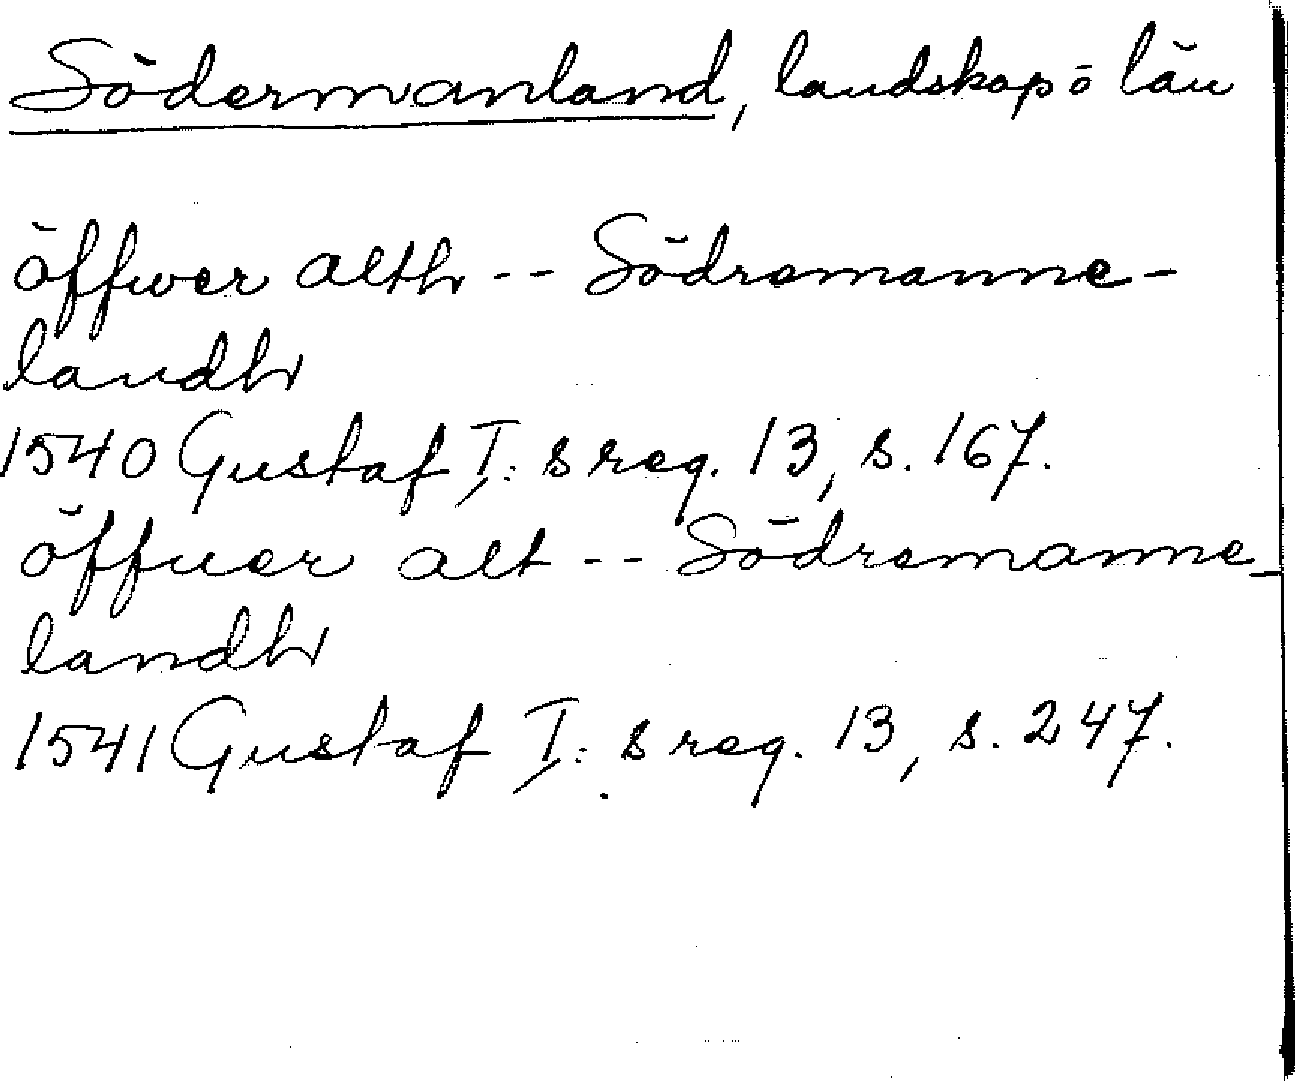 Södermanland, landskap o län
öffwer alth -- Södremanne-
landh
1540 Gustaf I:s reg. 13, s. 167.
öffuer alt -- Södremanne-
landh
1541 Gustaf I:s reg. 13, s. 247.